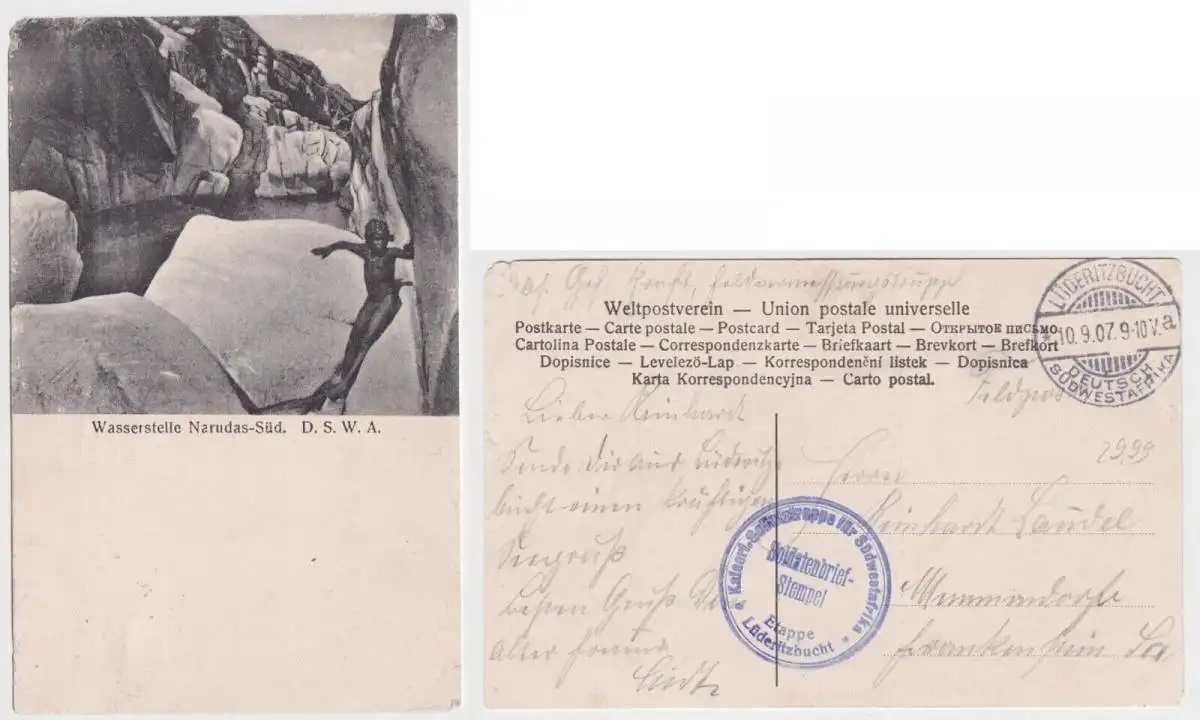 Wasserstelle Narudas-Süd. D. S. W. A.
Feldvermessungstrupp
Weltpostverein — Union postale universelle
Postkarte — Carte postale — Postcard — Tarjeta Postal — Открытое письмо
Cartolina Postale — Correspondenzkarte — Briefkaart — Brevkort — Brefkort
Dopisnice — Levelezö-Lap — Korrespondenční listek — Dopisnica
Karta Korrespondencyjna — Carto postal.
LÜDERITZBUCHT
10.9.07. 9-10 V. a
DEUTSCH
SÜDWESTAFRIKA
Feldpost
Lieber Reinhardt
Sende Dir aus Lüderitz-
bucht einen kräftigen
Seegruß
Besten Gruß Dein
alter Freund
29,99
Herrn
Reinhardt
Frankenstein Sa
Kaiserl. Schutztruppe für Südwestafrika
Soldatenbrief-
Stempel
Etappe
Lüderitzbucht